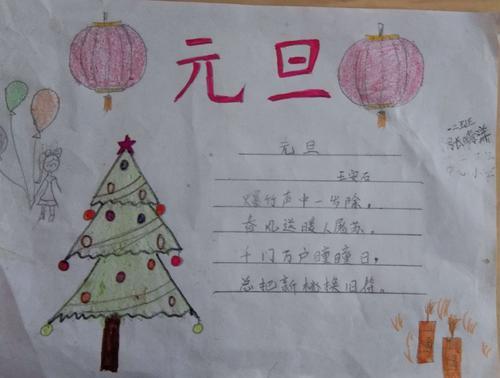 元旦
元旦
王安石
爆竹声中一岁除，
春风送暖入屠苏。
千门万户曈曈日，
总把新桃换旧符。
一、二班